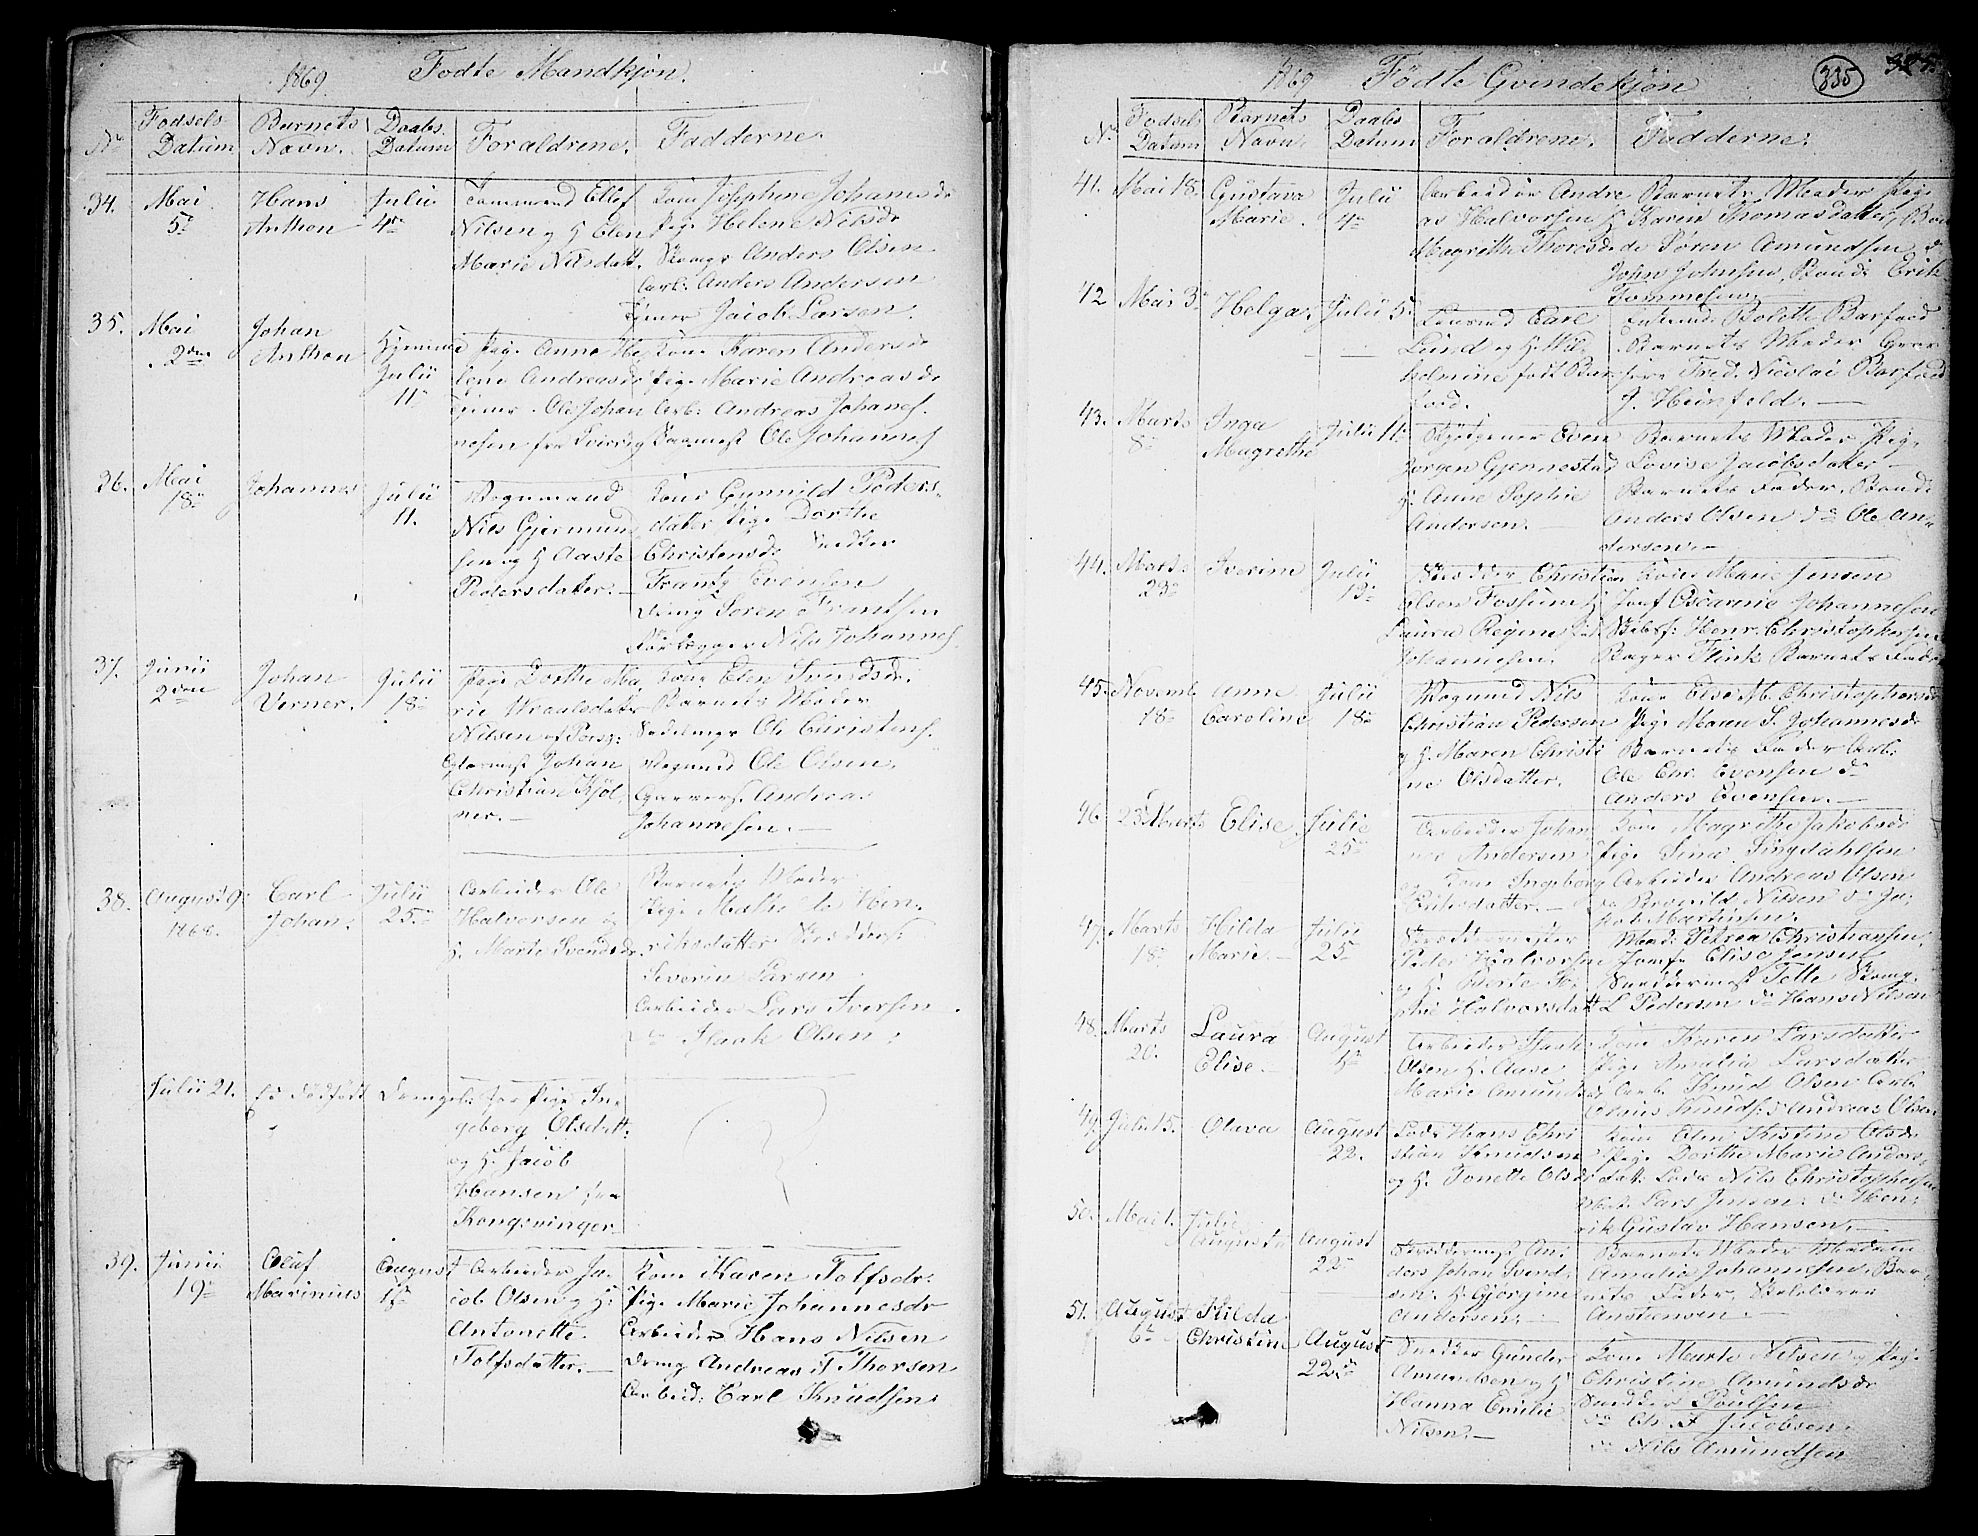 1869 Fødte Mandkjøn.
No Fødsels Datum. Barnets Navn. Daabs Datum Forældrene. Fadderne.
34. Mai 5te Hans Anthon Julii 4de
Tømmermd Ellef
Nilsen og H Elen
Marie Nilsdatt.
Kone Josephine Johansdr
Pige Helene Nilsdr
Anders Olsen
Arb: Anders Andersen
Jacob Larsen.
35. Mai 2den Johan Anthon Hjemme Julii 11te
Pige Anne He
lene Andreasdr
Ole Johan
nesen fra Sverig
Kone Karen Andersdr
Pige Marie Andreasdr
Arb: Andreas Johanes.
Ole Johannes
36. Mai 18de Johannes Julii 11.
Vognmand
Nils Gjermund
sen og H Aaste
Pedersdater.
Kone Gunnild Peders-
dater Pige Dorthe
Christensdr Snedker
Frantz Evensen
Dreng Søren Frantsen
Nils Johannes.
37. Junii 2den Johan Verner. Julii 18de
Pige Dorthe Ma
rie
Nilsen af Porsg:
Johan
Christian Kjøl
ner.
Kone Elen Svendsdr.
Barnets Moder
Ole Christens.
Vognmd Ole Olsen.
Andreas
Johannesen.
38. August 9. 1868. Carl Johan. Julii 25de
Arbeider Ole
Halvorsen og
H. Marte Svendsdr.
Barnets Moder
Pige Mathilde Hen
riksdatter
Severin Larsen
Arbeider Lars Iversen
do Isaak Olsen.
Julii 21. Et dødfødt Drengeb. for Pige In
geborg Olsdatt:
og H. Jacob
Hansen fra
Kongsvinger
39. Junii 19de Oluf Marinius August 1ste
Arbeider Ja
cob Olsen og H:
Antonette
Tolfsdatter.
Kone Karen Tolfsdr:
Pige Marie Johannesdr
Arbeider Hans Nilsen
Dreng Andreas T Thorsen
Arbeid: Carl Knudsen.
1869 Födte Qvindekjön 335
No Fødsel: Datum Barnets Navn. Daabs Datum Forældrene. Fadderne.
41. Mai 18. Gustava Marie. Julii 4de
Arbeider Andre
as Halvorsen H
Magrethe Thorsdr
Barnets Moder Pige
Karen Thomasdatter, Bon
de Søren Amundsen do
John Johnsen, Bonde Erik
Tommesen
42 Mai 3de Helga. Julii 5te
Carl
Lund og H. Wil
helmine født Bar
foed.
Bolette Barfoed
Barnets Moder
Fred. Nicolai Barfoed
J. Heinfeldt.
43. Marts 8de Inga Magrethe Julii 11te
Even
Jørgen Gjennestad
H. Anne Sophie
Andersen.
Barnets Moder Pige
Lovise Jacobsdater
Barnets Fader, Bonde
Anders Olsen do Ole An-
dersen.
44. Marts 23de Iverine Julii 13de
Christian
Olsen Fossum H
Laura Regine fød
Johannesen.
Kone Marie Jensen
Jomf Oscarine Johannesen
Henr. Christophersen
Bager Flink Barnets Fader
45. Novemb 18de Anne Caroline Julii 18de
Vognmd Nils
Christian Pedersen
og H. Maren Christi
ne Olsdatter.
Kone Else M. Christophersdr
Pige Maren S. Johannesdr
Barnets Fader Arb:
Ole Chr. Evensen do
Anders Evensen.
46. 23de Marts Elise Julie 25de
Arbeider Johan
nes Andersen
og Kone Ingeborg
Eriksdatter.
Kone Magrethe Jakobsdr
Pige Sina Singdahlsen
Arbeider Andreas Olsen
do Nilsen do Ja-
kob Martinsen.
47. Marts 18de Hilda Marie. Julii 25de
Peder Halvorsen
og H. Berte So
phie Halvorsdatt
Mad: Petrea Christiansen
Jomfr Elise Jensen
Snedkermest Tette
L Pedersen do Hans Nilsen
48. Marts 20. Laura Elise. August 1ste
Arbeider Isaak
Olsen H. Aase
Marie Amundsdr
Kone Karen Larsdatter
Pige Amalie Larsdatter
Arb. Knud Olsen Arb.
Knuds: do Andreas Olsen
49. Juli 15. Olava August 22.
Lods Hans Chri
stian Knudsen
og H. Tonette Olsdr
Kone Kistine Olsdr
Pige Dorthe Marie Anders
datt: Lods Nils Christophersen
Lars Jensen. do Hen-
rik Gustav Hansen.
50. Mai 1. Julie Augusta August 22de
An
ders Johan Svend
sen. H. Gjørgine
Andersen.
Barnets Moder Madam
Amalie Johannesen, Bar
nets Fader, Skolelærer
Anstensen
51. August 6te Hilda Christine August 22de
Snedker Gunder
Amundsen og H
Hanna Emilie
Nilsen.
Kone Marte Nilsen og Pige
Christine Amundsdr
Snedker Poulsen
do Ch. F Jacobsen.
do Nils Amundsen